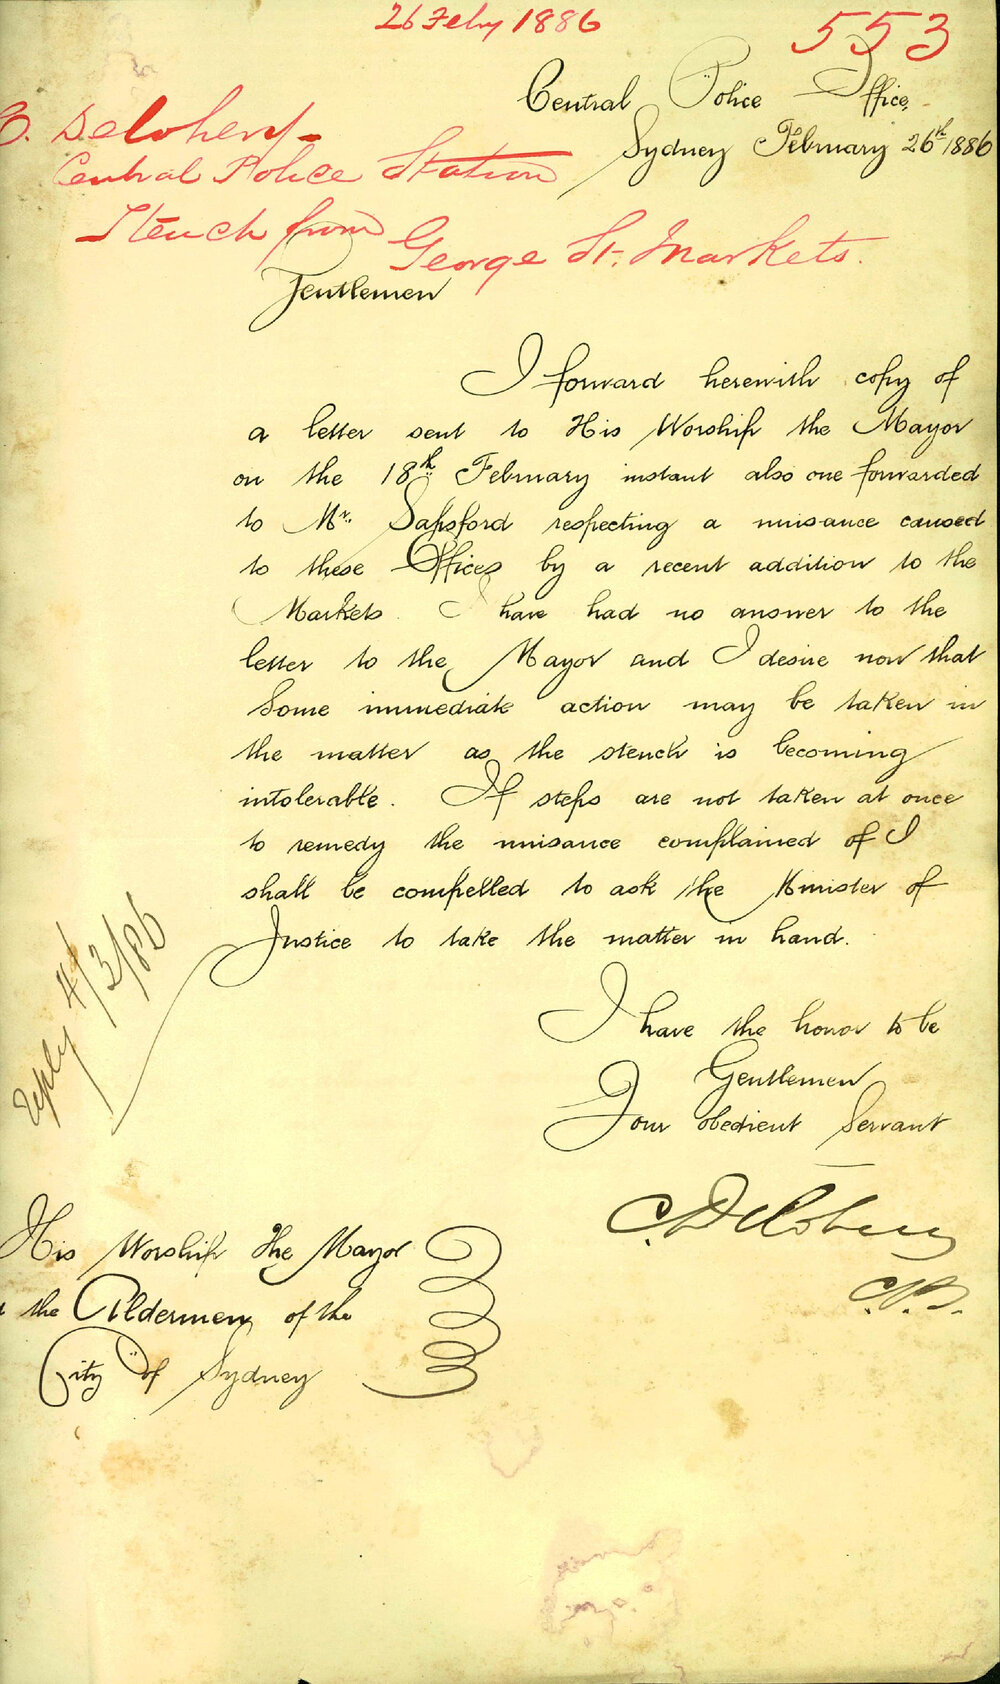 26 Feby 1886
553
Central Police Office
Sydney February 26th 1886
Delohery
Central Police Station
Stench from
George St. Markets.
Gentlemen
I forward herewith copy of
a letter sent to His Worship the Mayor
on the 18th February instant also one forwarded
to Mr. Sapsford respecting a nuisance caused
to these Offices by a recent addition to the
Markets. I have had no answer to the
letter to the Mayor and I desire now that
some immediate action may be taken in
the matter as the stench is becoming
intolerable. If steps are not taken at once
to remedy the nuisance complained of I
shall be compelled to ask the Minister of
Justice to take the matter in hand.
reply 4/3/86
I have the honor to be
Gentlemen
Your obedient Servant
C. Delohery
His Worship the Mayor
the Aldermen of the
City of Sydney